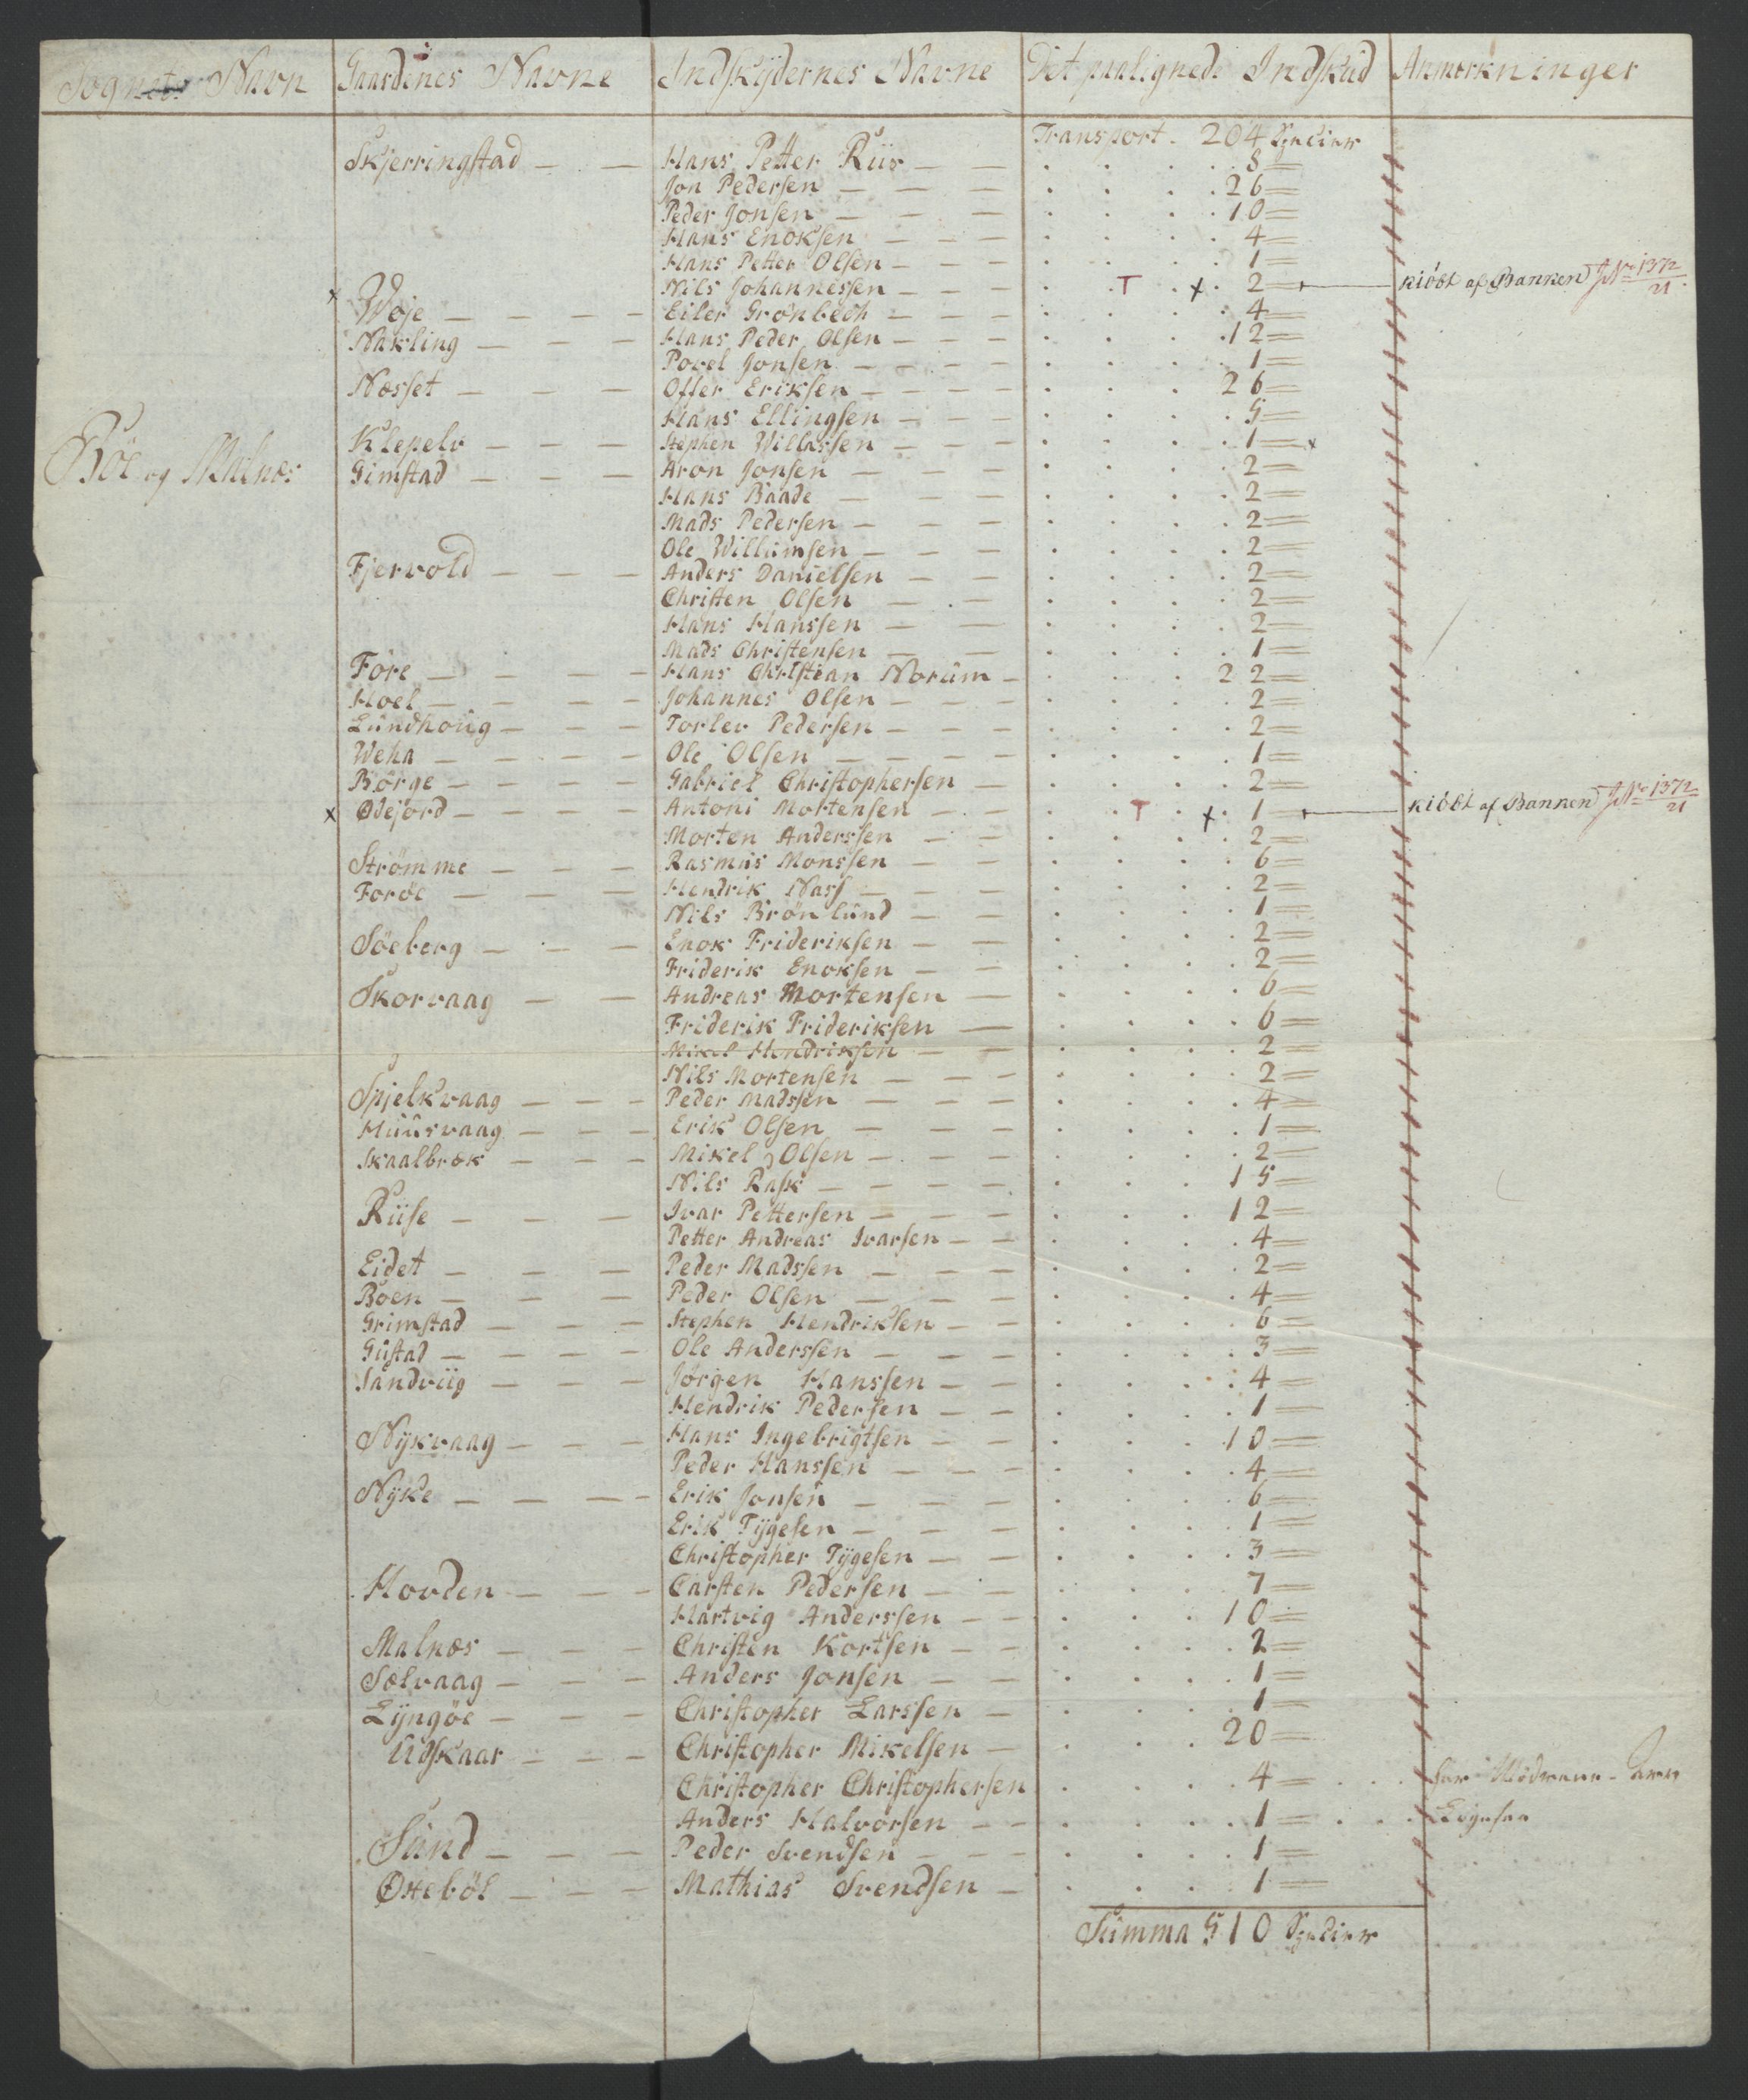 Sognets Navn Gaardenes Navne Indskydernes Navne Det paalignede Indskud Anmerkninger
Transport. 204 Specier
Skjerringstad Hans Petter Riis 8
Jon Pedersen 26
Peder Jonsen 10
Hans Enoksen 4
Hans Petter Olsen 1
Nils Johannessen T x 2 kiöbt af Banken JNo 1372/21
x Woje Eiler Grønbech 4
Nakling Hans Peder Olsen 12
Povel Jonsen 1
Næsset Offer Eriksen 26
Hans Ellingsen 5
Klepelv Stephen Willassen 1 x
Böe og Malnæs Gimstad Aron Jonsen 2
Hans Baade 2
Mads Pedersen 2
Ole Willumsen 2
Fjervold Anders Danielsen 2
Christen Olsen 2
Hans Hanssen 2
Mads Christensen 1
Före Hans Christian Norum 22
Hoel Johannes Olsen 2
Lundhoug Torlev Pedersen 2
Weha Ole Olsen 1
Börge Gabriel Christophersen 2
x Ødejord Antoni Mortensen T x 1 kiöbt af Banken JNo 1372/21
Morten Anderssen 2
Strømme Rasmus Monssen 6
Foröe Hendrik Nass 2
Nils Brönlund 1
Söeberg Enok Frideriksen 2
Friderik Enoksen 2
Skorvaag Andreas Mortensen 6
Friderik Frideriksen 6
Mikel Hendriksen 2
Nils Mortensen 2
Spjelkvaag Peder Madssen 4
Huusvaag Erik Olsen 1
Skaalbræk Mikel Olsen 2
Nils Rask 15
Riise Ivar Pettersen 12
Petter Andreas Ivarsen 4
Eidet Peder Madssen 2
Böen Peder Olsen 4
Grimstad Stephen Hendriksen 6
Gustad Ole Anderssen 3
Sandviig Jørgen Hanssen 4
Hendrik Pedersen 1
Nykvaag Hans Ingebrigtsen 10
Peder Hanssen 4
Nyke Erik Jonsen 6
Erik Tygesen 1
Christopher Tygesen 3
Hovden Carsten Pedersen 7
Hartvig Anderssen 10
Malnæs Christen Kortsen 2
Sælvaag Anders Jonsen 1
Lyngöe Christopher Larssen 1
Udskaar Christopher Mikelsen 20
Christopher Christophersen 4
Anders Halvorsen 1
Sund Peder Svendsen 1
Østeböl Mathias Svendsen 1
Summa 510 Specier